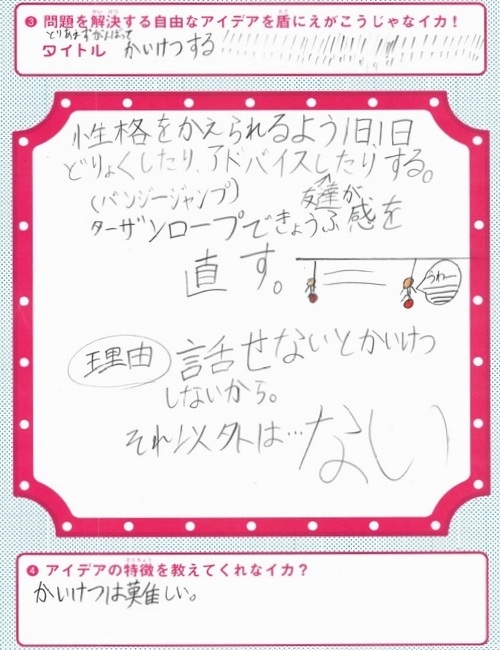 ❸ 問題を解決する自由なアイデアを盾にえがこうじゃなイカ！
とりあえずがんばって
タイトル かいけつする
性格をかえられるよう1日1日
どりょくしたり、アドバイスしたりする。
(バンジージャンプ) 友達が
ターザンロープできょうふ感を
直す。
うわー
理由 話せないとかいけつ
しないから。
それ以外は…ない
❹ アイデアの特徴を教えてくれなイカ？
かいけつは難しい。